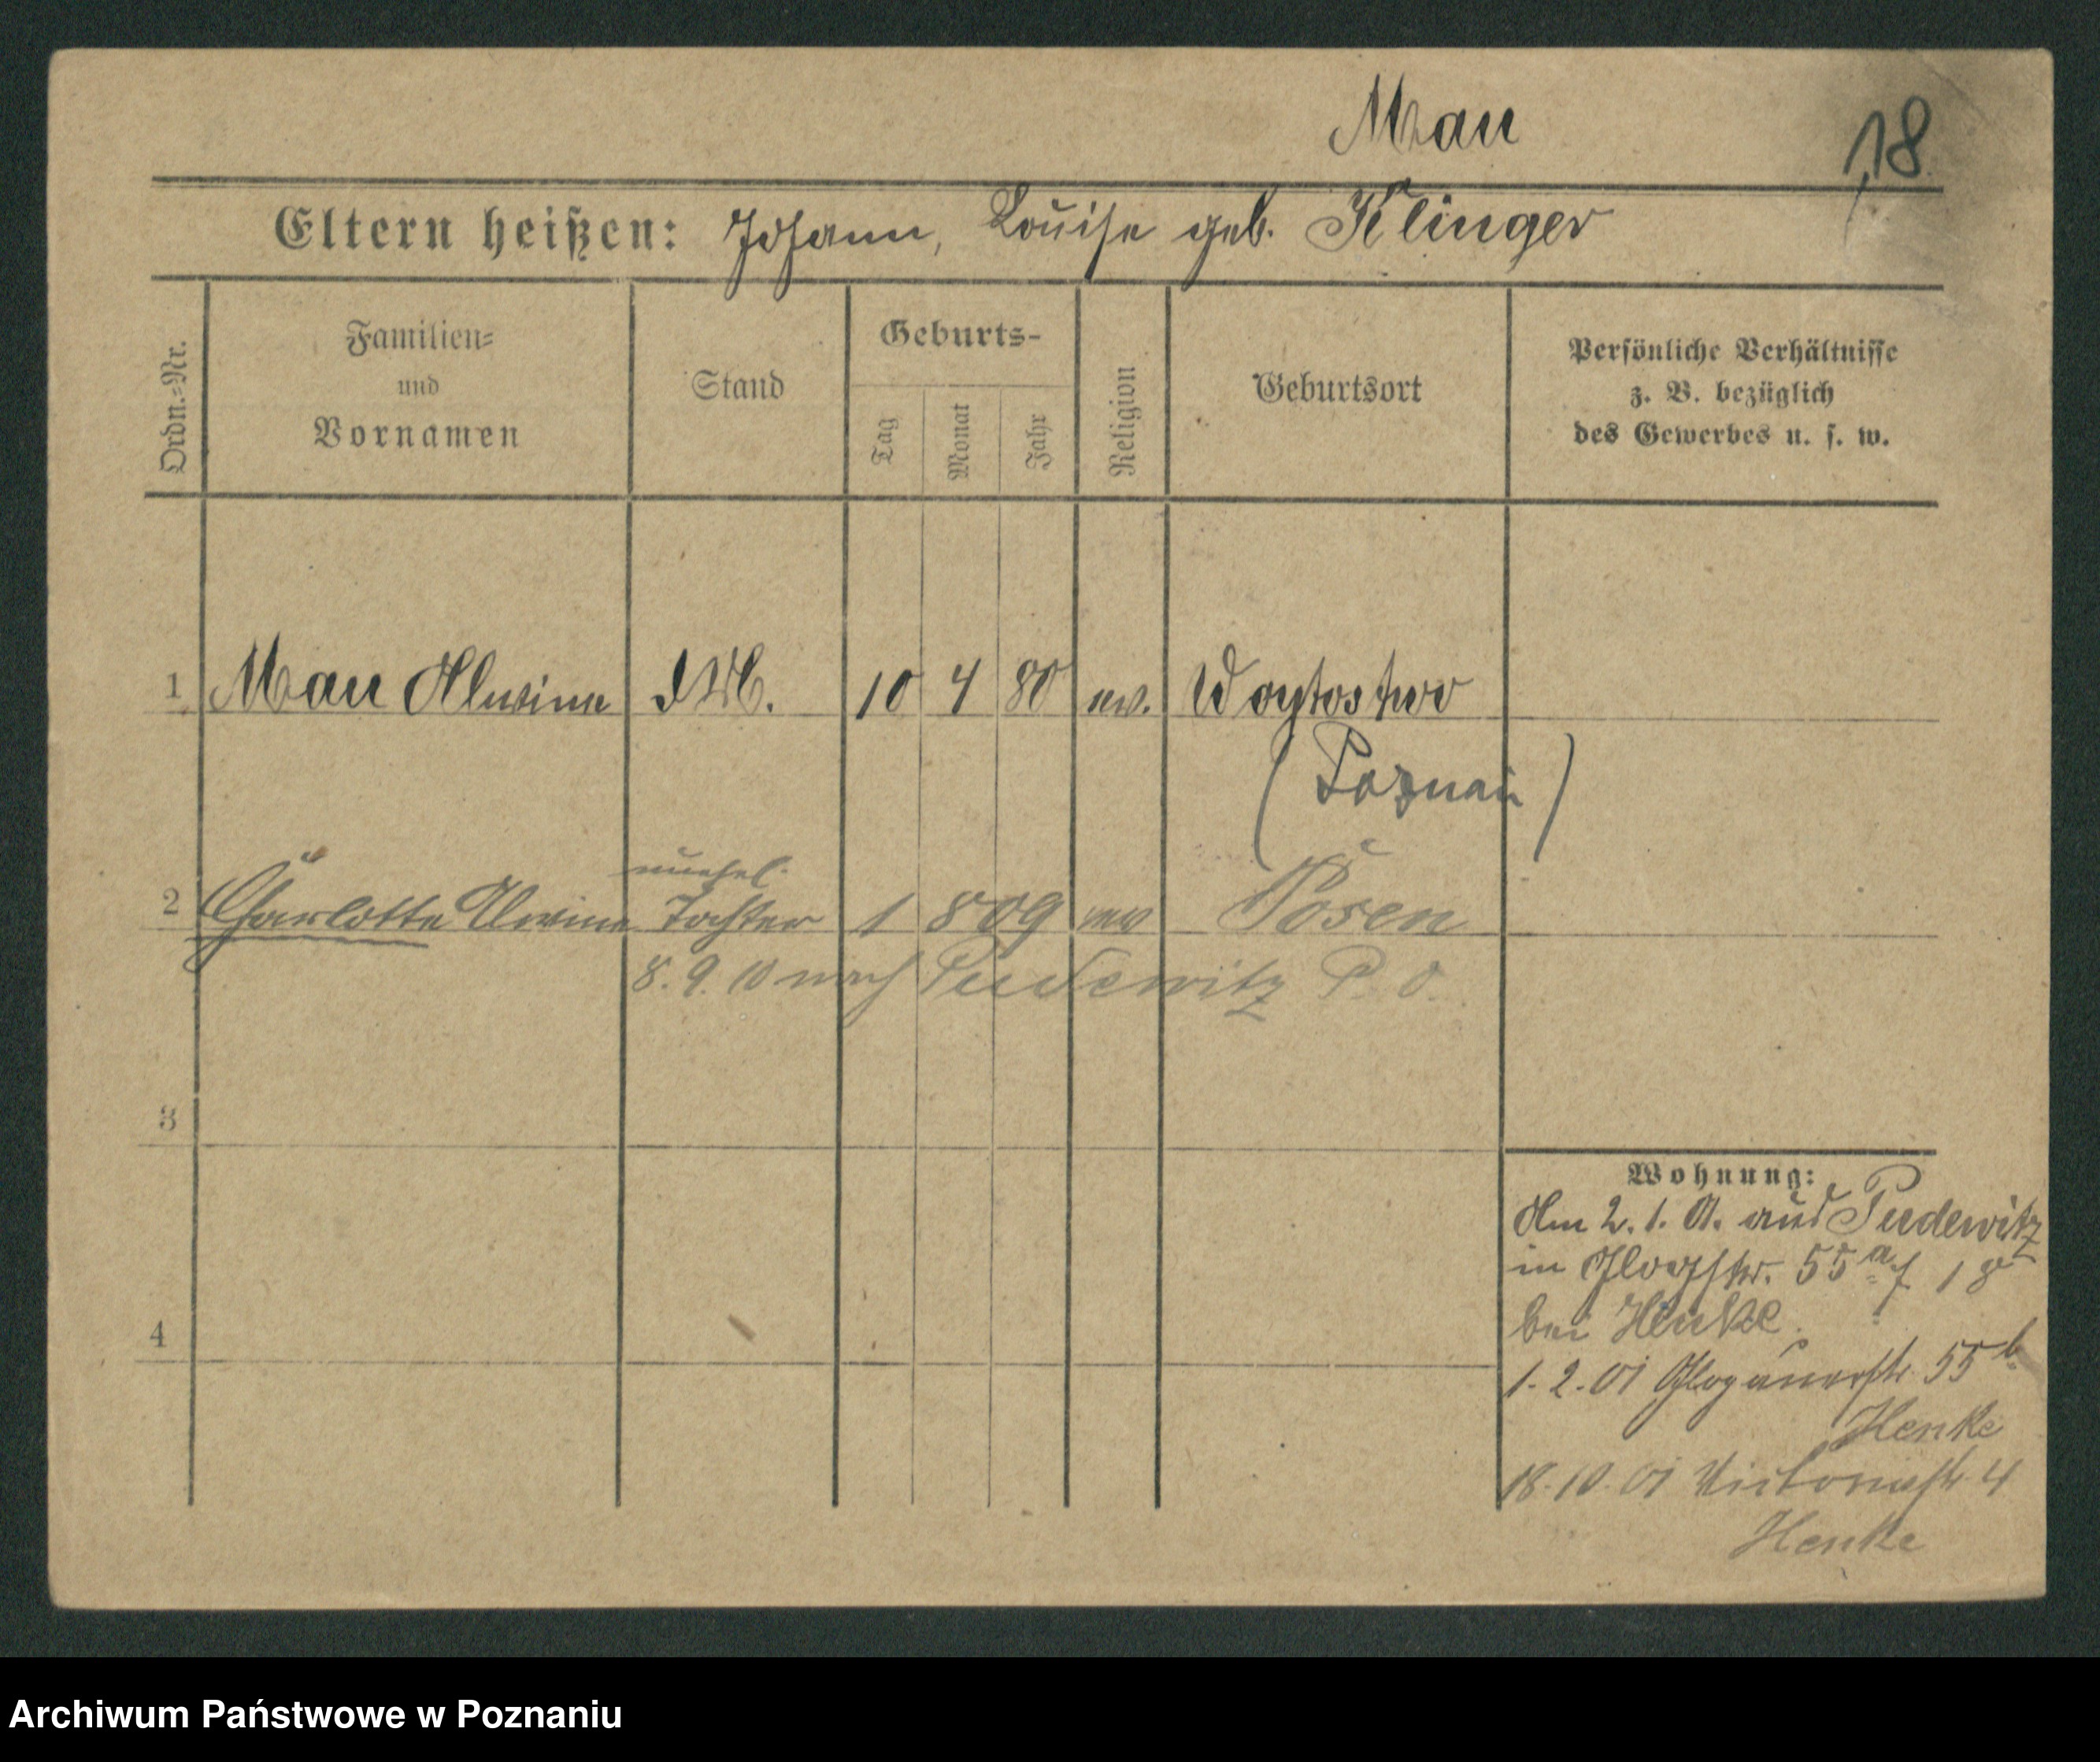 Mau
18
Eltern heißen: Johann, Louise geb. Klinger
Ordn.=Nr.
Familien=
und
Vornamen
Stand
Geburts-
Tag
Monat
Jahr
Religion
Geburtsort
Persönliche Verhältnisse
z. B. bezüglich
des Gewerbes u. s. w.
1 Mau Alwine 10 4 80 ev. Woytostwo
(Poznań)
unehel.
2 Charlotte Alwine Tochter 1 8 09 ev Posen
8.9.10 nach Pudewitz P. O.
3
4
Wohnung:
Am 2.1.01. aus Pudewitz
in Glogstr. 55a 18
bei Henke.
1.2.01 Glogauerstr. 55b
Henke
18.10.01 Victoriastr. 4
Henke
Archiwum Państwowe w Poznaniu